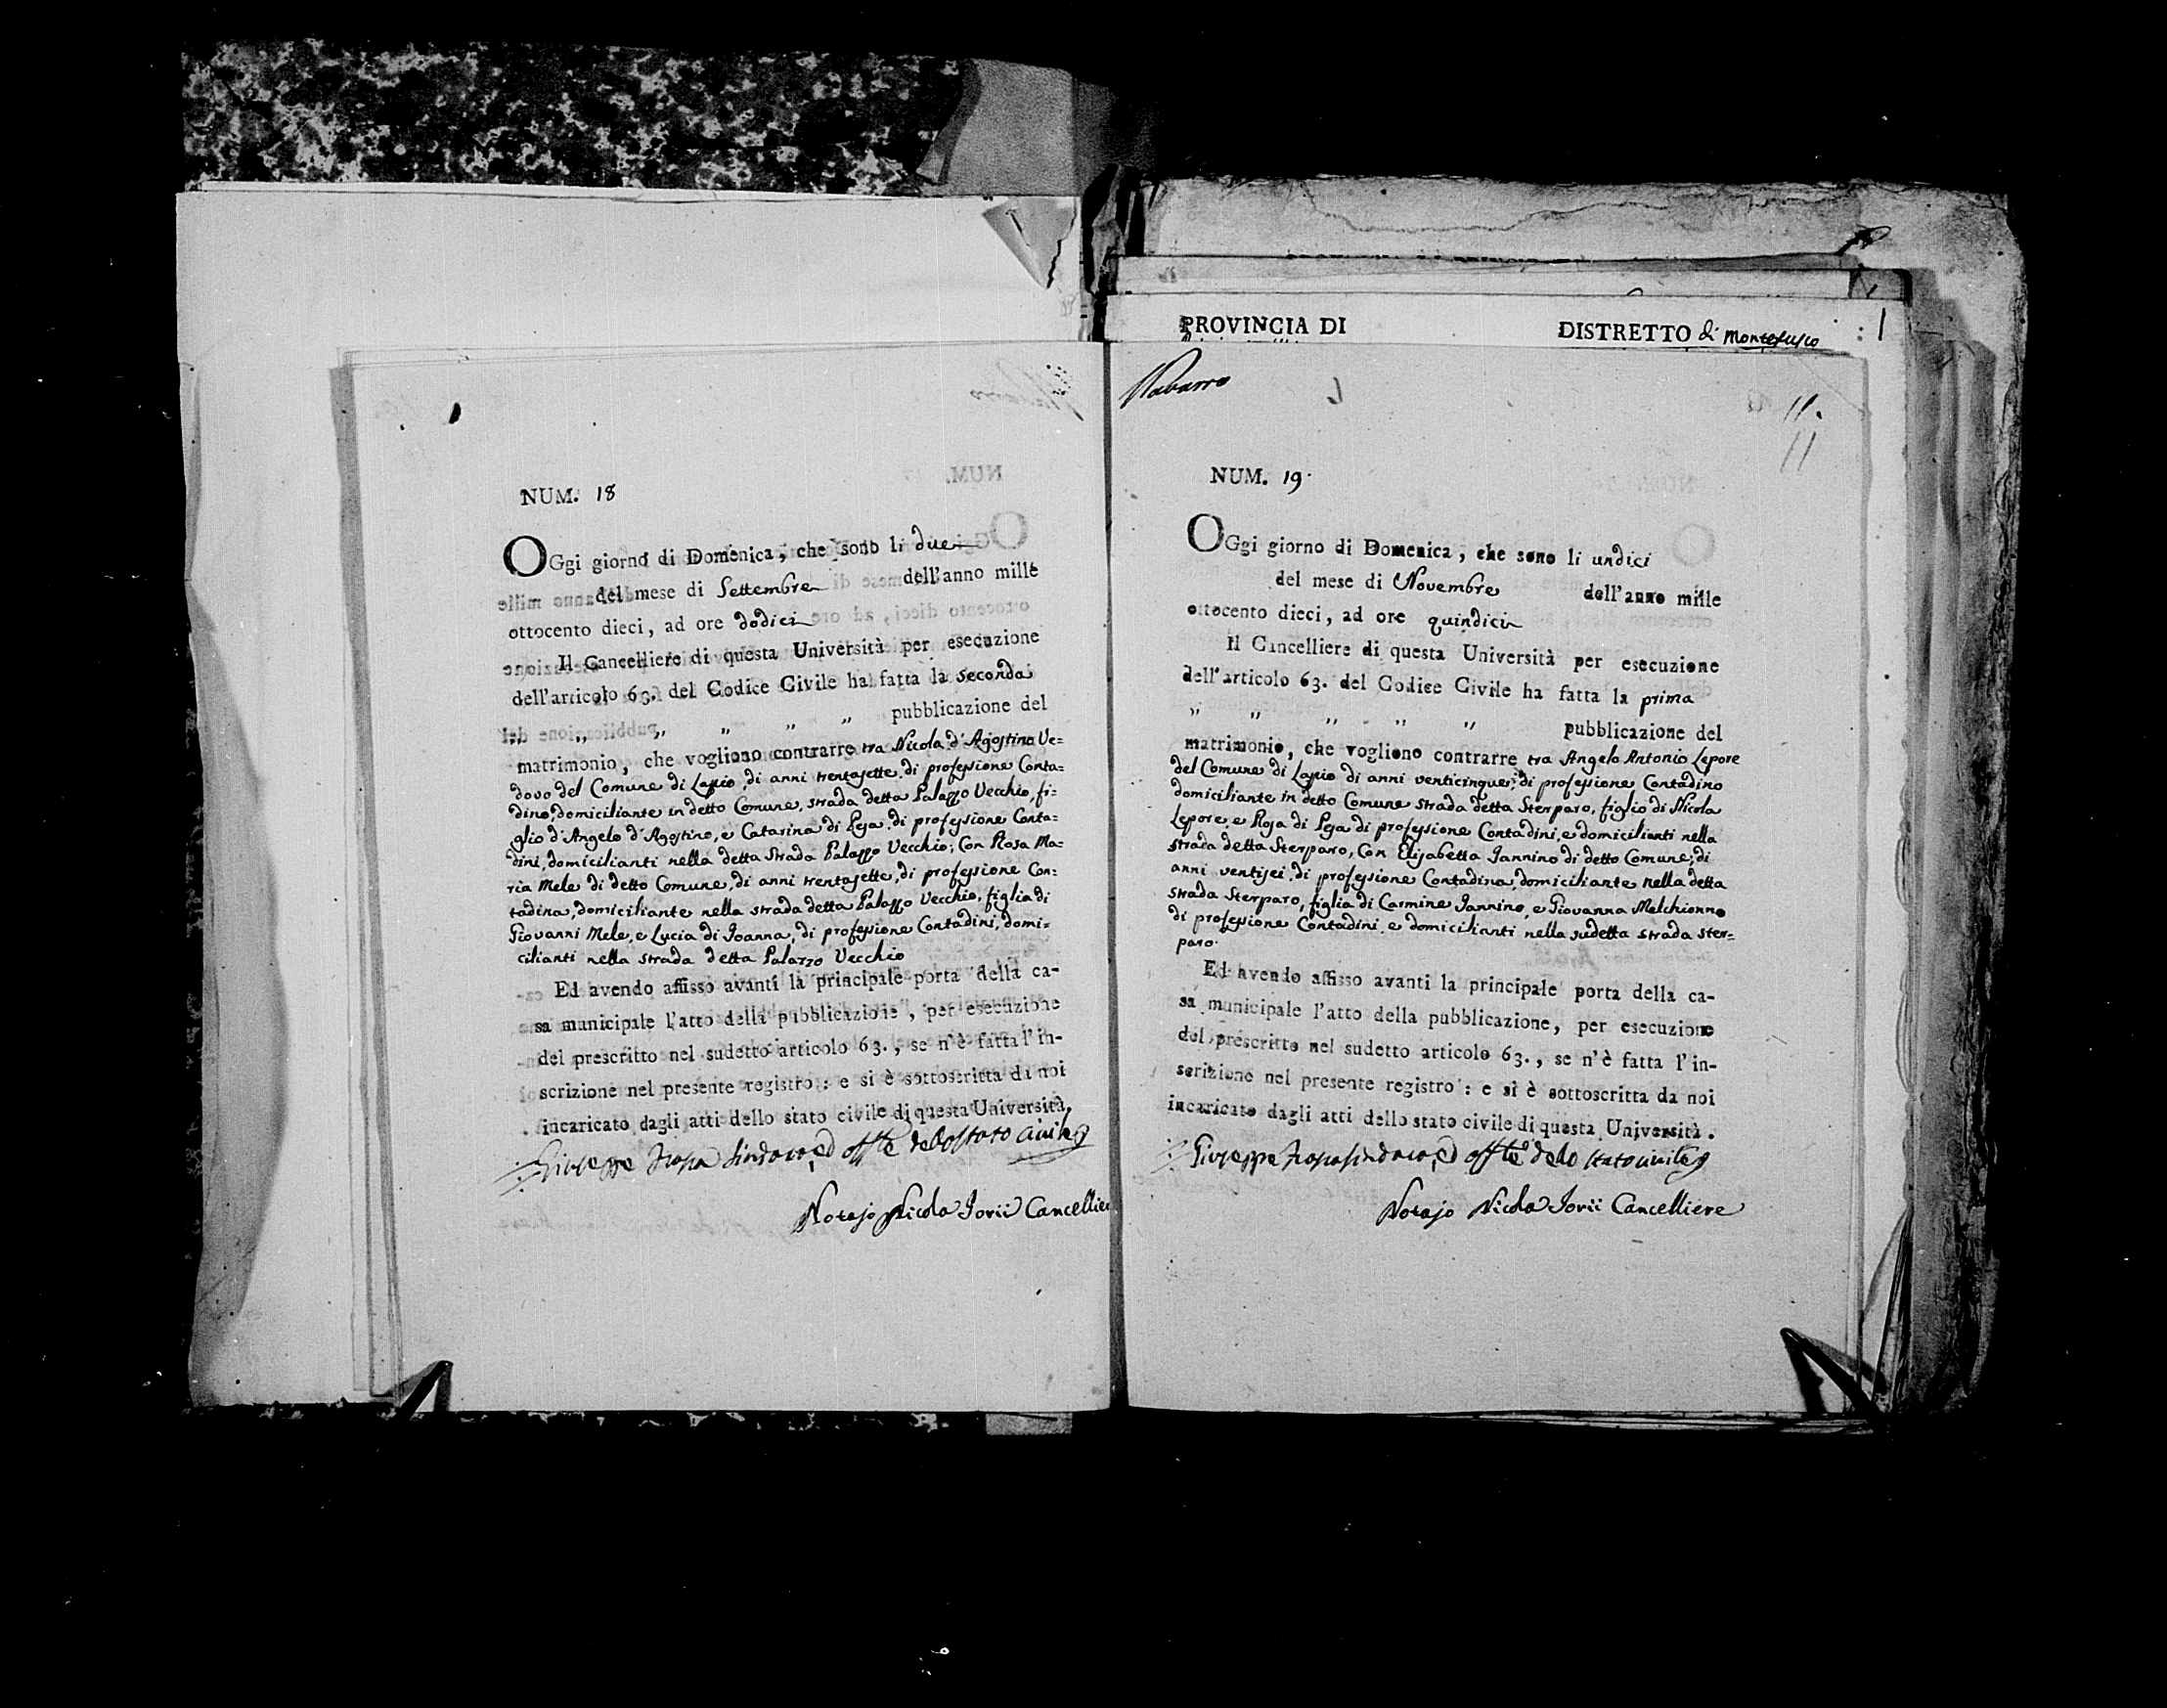 NUM. 18
OGgi giorno di Domenica, che sono li due
del mese di Settembre dell'anno mille
ottocento dieci, ad ore dodici
Il Cancelliere di questa Università per esecuzione
dell'articolo 63. del Codice Civile ha fatta la seconda
" " " " " pubblicazione del
matrimonio, che vogliono contrarre tra Nicola d'Agostino Ve=
dovo del Comune di Lapio, di anni trentasette, di professione Conta=
dino, domiciliante in detto Comune, strada detta Palazzo Vecchio, fi=
glio d'Angelo d'Agostino, e Catarina di Peja, di professione Conta=
dini, domicilianti nella detta Strada Palazzo Vecchio; Con Rosa Ma=
ria Mele di detto Comune, di anni trentasette, di professione Con=
tadina, domiciliante nella strada detta Palazzo Vecchio, figlia di
Giovanni Mele, e Lucia di Joanna, di professione Contadini, domi=
cilianti nella strada detta Palazzo Vecchio
Ed avendo affisso avanti la principale porta della ca-
sa municipale l'atto della pubblicazione, per esecuzione
del prescritto nel sudetto articolo 63., se n'è fatta l'in-
scrizione nel presente registro: e si è sottoscritta da noi
incaricato dagli atti dello stato civile di questa Università.
Giuseppe Sindaco, ed offle dello stato civile
Notajo Nicola Jorii Cancelliere
PROVINCIA DI DISTRETTO di Montefusco
Navarro
11.
11
NUM. 19.
OGgi giorno di Domenica, che sono li undici
del mese di Novembre dell'anno mille
ottocento dieci, ad ore quindici
Il Cancelliere di questa Università per esecuzione
dell'articolo 63. del Codice Civile ha fatta la prima
" " " " " pubblicazione del
matrimonio, che vogliono contrarre tra Angelo Antonio Lepore
del Comune di Lapio di anni venticinque, di professione Contadino
domiciliante in detto Comune strada detta Sterparo, figlio di Nicola
Lepore, e Rosa di Peja di professione Contadini, e domicilianti nella
strada detta Sterparo, Con Elisabetta Jannino di detto Comune, di
anni ventisei, di professione Contadina, domiciliante nella detta
strada Sterparo, figlia di Carmine Jannino, e Giovanna Melchionno
di professione Contadini, e domicilianti nella sudetta strada Ster=
paro.
Ed avendo affisso avanti la principale porta della ca-
sa municipale l'atto della pubblicazione, per esecuzione
del prescritto nel sudetto articolo 63., se n'è fatta l'in-
scrizione nel presente registro: e si è sottoscritta da noi
incaricato dagli atti dello stato civile di questa Università.
Giuseppe sindaco, ed offle delo stato civile
Notajo Nicola Jorii Cancelliere